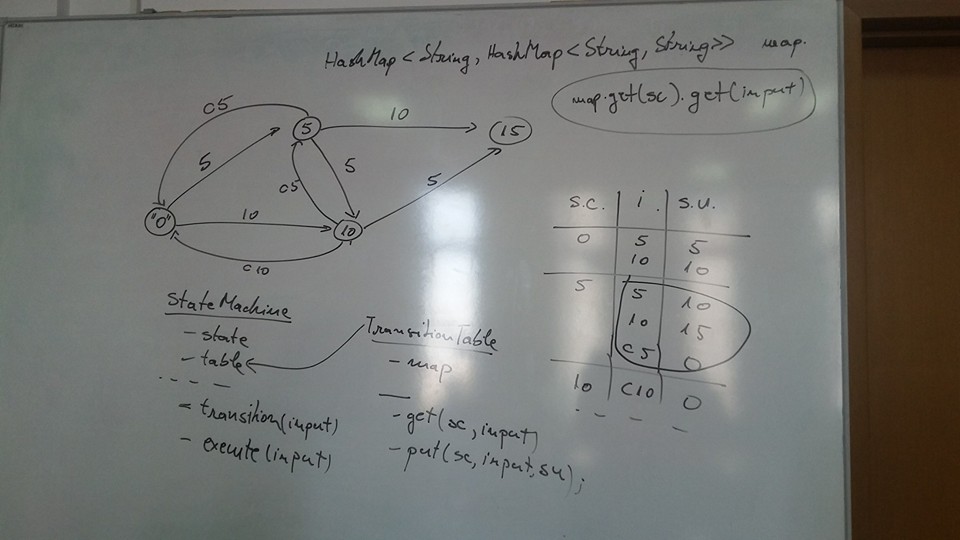 HashMap<String, HashMap<String, String>> map.
map.get(sc).get(input)
c5
10
5
15
5
5
c5
5
"0"
10
10
c10
s.c. i. s.u.
0 5 5
10 10
5 5 10
10 15
c5 0
10 c10 0
StateMachine
- state
- table
- transition(input)
- execute(input)
TransitionTable
- map
- get(sc, input)
- put(sc, input, su);